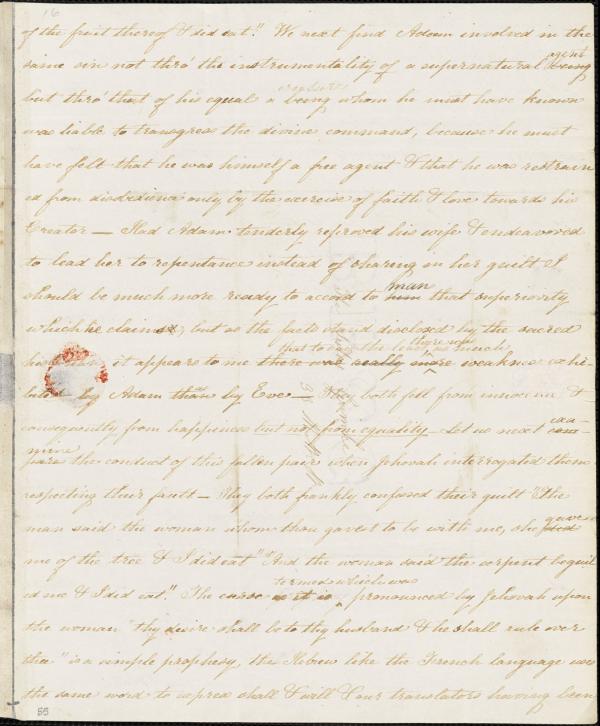 16
of the fruit thereof & I did eat." We next find Adam involved in the
agent
same sin not thro' the instrumentality of a supernatural being
but thro' that of his equal a being whom he must have known
was liable to transgress the divine command, because he must
have felt that he was himself a free agent & that he was restrain
ed from disobedience only by the exercise of faith & love towards his
Creator — Had Adam tenderly reproved his wife & endeavored
to lead her to repentance instead of sharing in her guilt I
man
should be much more ready to accord to him that superiority
which he claims; but as the facts stand disclosed by the sacred
that to say the least there was as much
it appears to me there was really more weakness exhi-
bited by Adam than by Eve — They both fell from innocence, &
consequently from happiness but not from equality — Let us next exa-
mine
the conduct of this fallen pair when Jehovah interrogated them
respecting their fault — They both frankly confessed their guilt "The
gave
man said the woman whom thou gavest to be with me, she
me of the tree & I did eat" "And the woman said the serpent beguil
ed me & I did eat." The curse as it is
termed which was
pronounced by Jehovah upon
the woman "thy desire shall be to thy husband & he shall rule over
thee" is a simple prophesy, the Hebrew like the French language uses
the same word to express shall & will & our translators having been
55